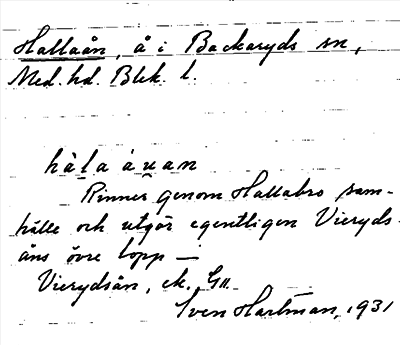 Hallaån, å i Backaryds sn,
Med. hd. Blek. l.
hàl̠a áu̯an
Rinner genom Hallabro sam-
hälle och utgör egentligen Vieryds-
åns övre lopp —
Vierydsån, ek. G11.
Sven Hartman, 1931